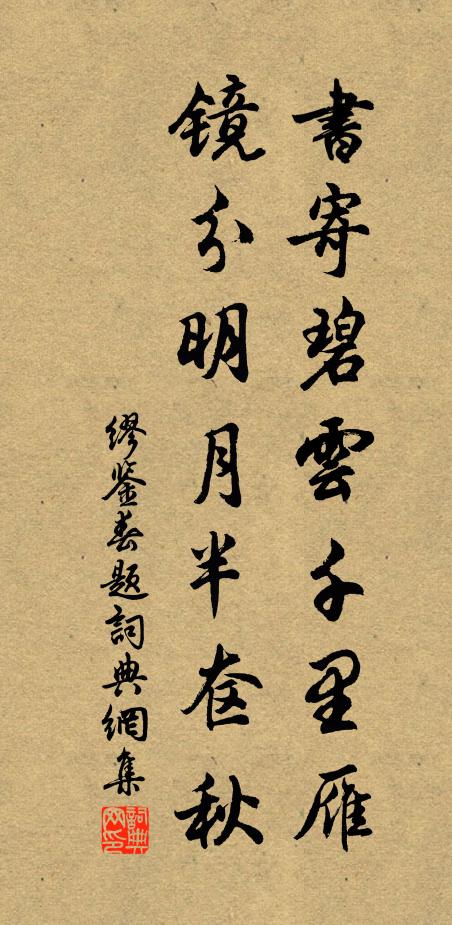 書寄碧雲千里雁
鏡分明月半奩秋
繆鑒春題詞典網集
詞典網印